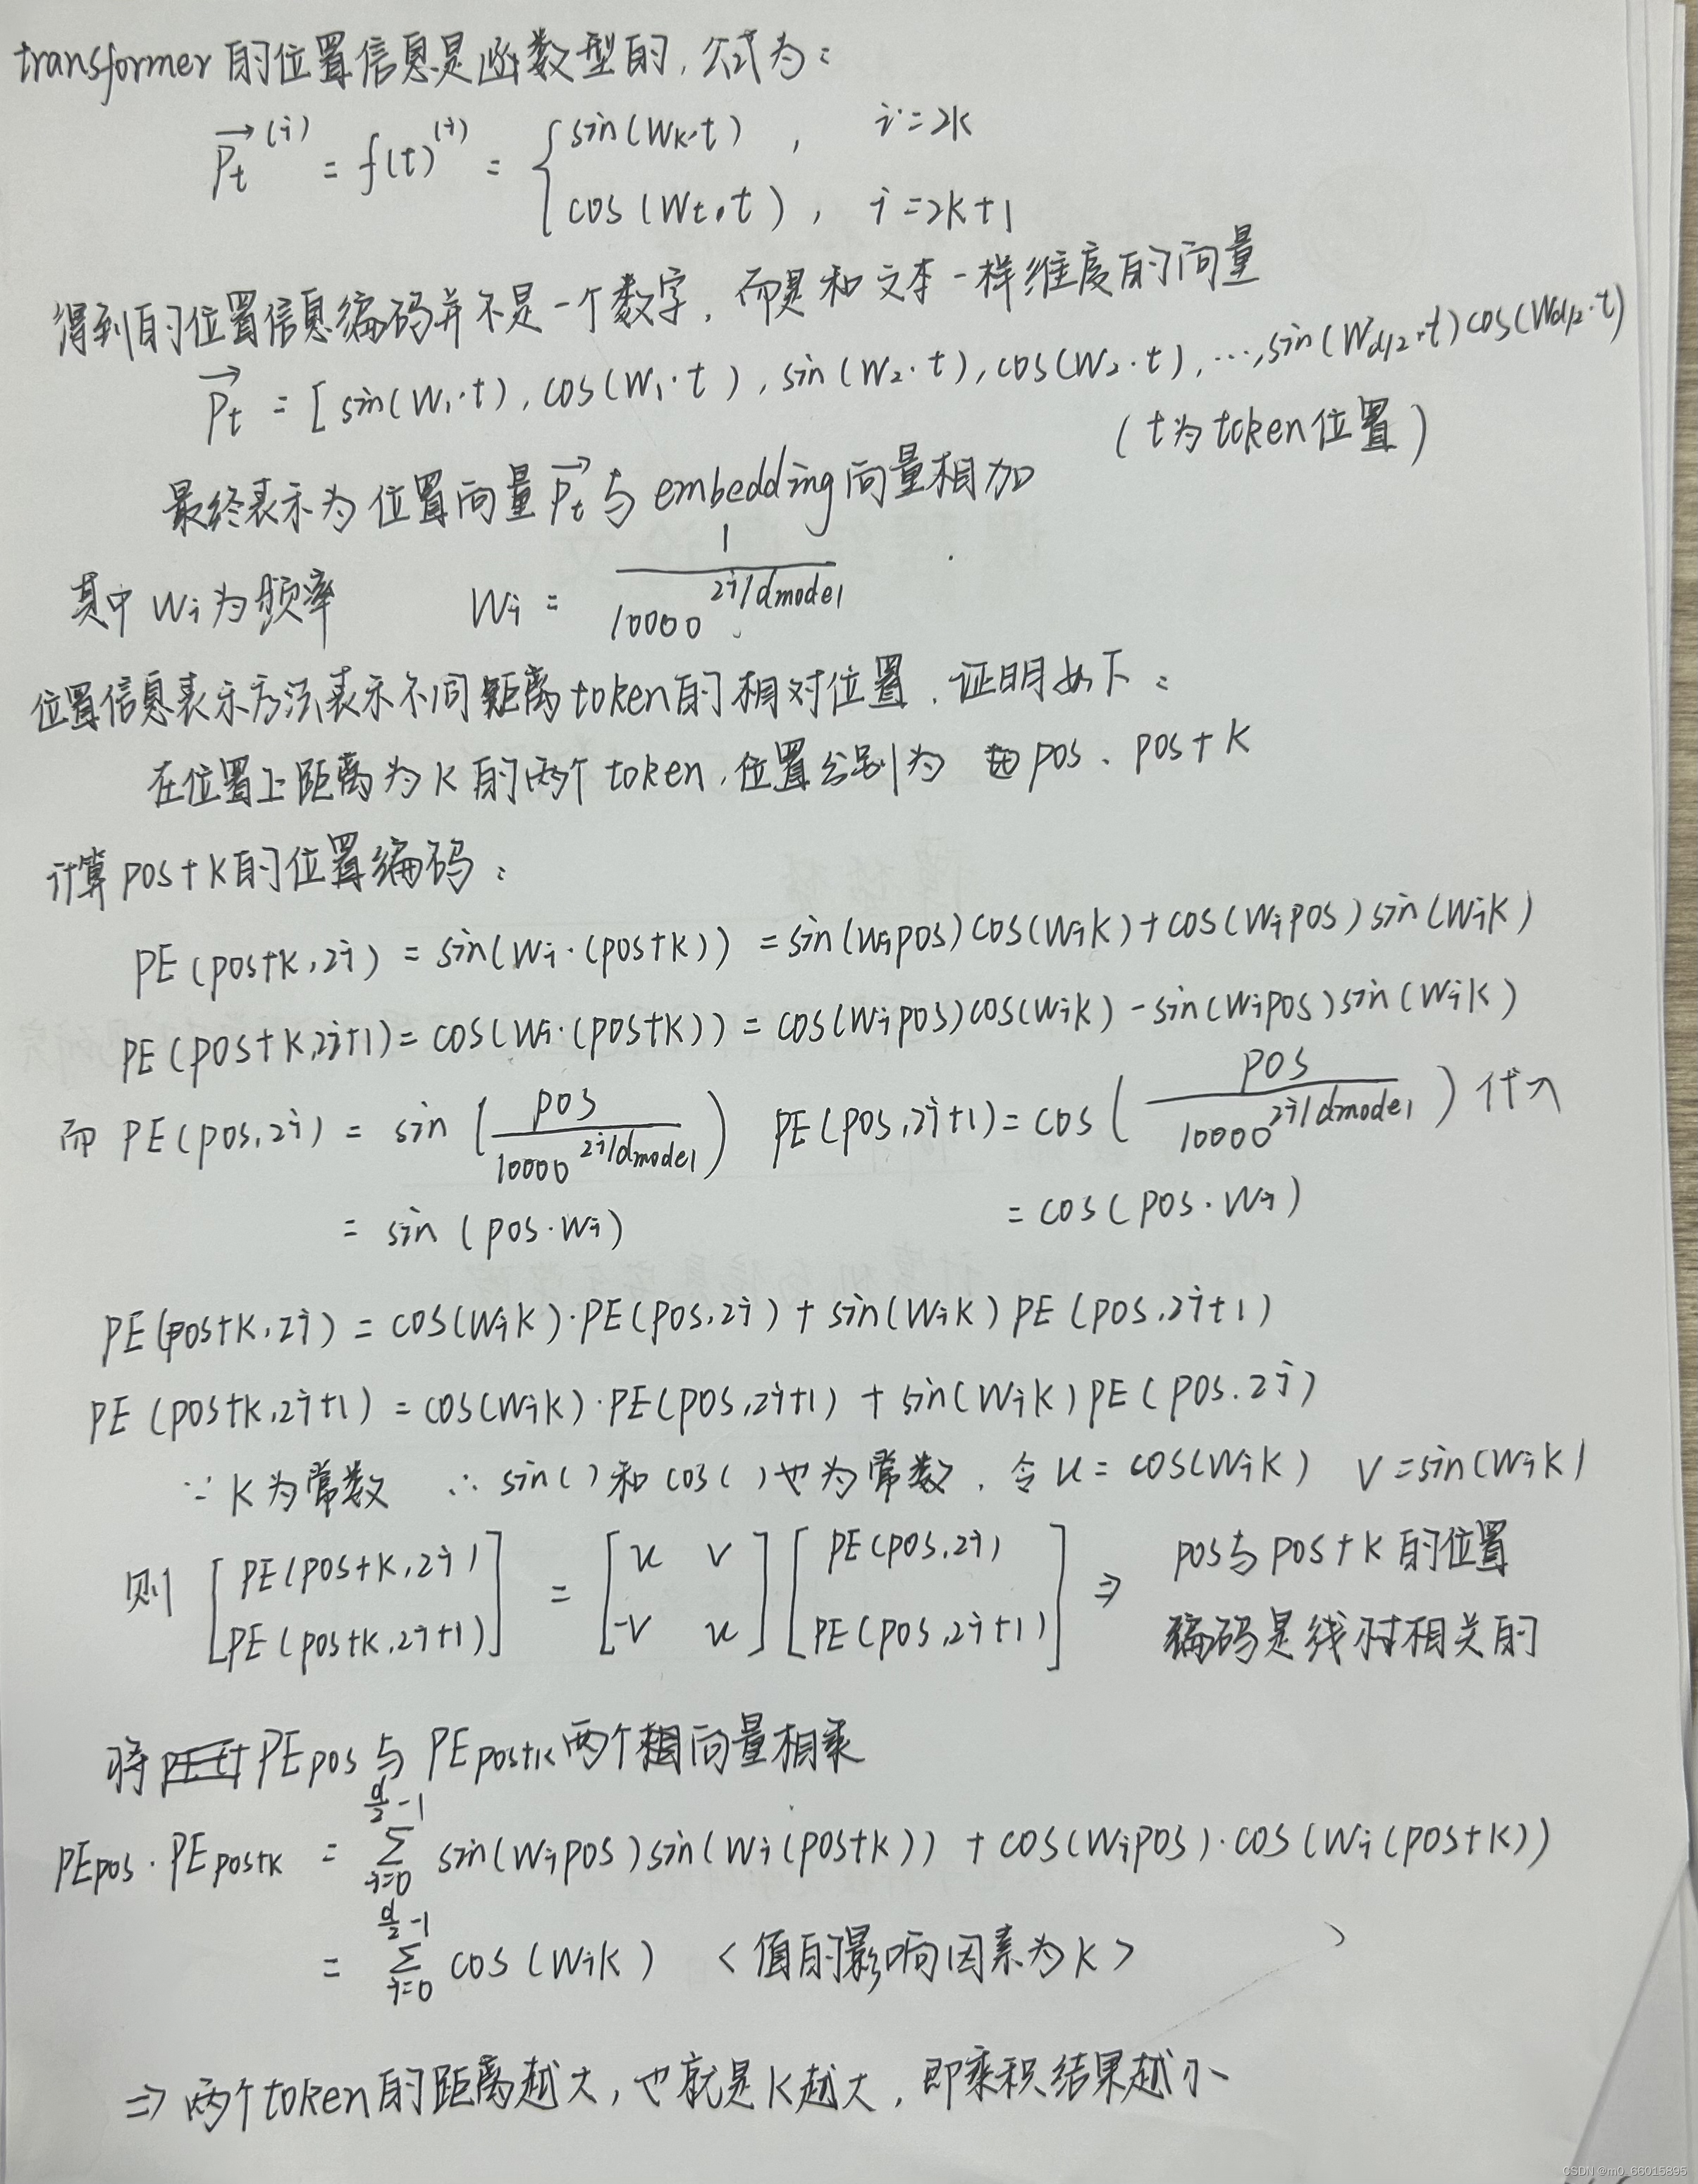 transformer的位置信息是函数型的，公式为：
→Pt^(i) = f(t)^(i) = { sin(Wk·t) , i=2k
cos(Wt·t) , i=2k+1
得到的位置信息编码并不是一个数字，而是和文本一样维度的向量
→Pt = [sin(W1·t), cos(W1·t), sin(W2·t), cos(W2·t), ..., sin(Wd/2·t) cos(Wd/2·t)
(t为token位置)
最终表示为位置向量→Pt与embedding向量相加
其中Wi为频率 Wi = 1 / 10000^(2i/dmodel)
位置信息表示方法表示不同距离token的相对位置，证明如下：
在位置上距离为K的两个token，位置分别为 pos、pos+K
计算pos+K的位置编码：
PE(pos+K,2i) = sin(Wi·(pos+K)) = sin(Wipos)cos(WiK)+cos(Wipos)sin(WiK)
PE(pos+K,2i+1) = cos(Wi·(pos+K)) = cos(Wipos)cos(WiK)-sin(Wipos)sin(WiK)
而 PE(pos,2i) = sin(pos / 10000^(2i/dmodel)) PE(pos,2i+1) = cos(pos / 10000^(2i/dmodel)) 代入
= sin(pos·Wi) = cos(pos·Wi)
PE(pos+K,2i) = cos(WiK)·PE(pos,2i) + sin(WiK) PE(pos,2i+1)
PE(pos+K,2i+1) = cos(WiK)·PE(pos,2i+1) + sin(WiK) PE(pos.2i)
∵ K为常数 ∴ sin()和cos()也为常数，令u=cos(WiK) v=sin(WiK)
则 [PE(pos+K,2i) = [u v [PE(pos,2i) ⇒ pos与pos+K的位置
PE(pos+K,2i+1)] -v u] PE(pos,2i+1)] 编码是线性相关的
将PEpos与PEpos+k两个向量相乘
PEpos·PEpos+k = Σ(i=0)^(d/2-1) sin(Wipos)sin(Wi(pos+K)) + cos(Wipos)·cos(Wi(pos+K))
= Σ(i=0)^(d/2-1) cos(WiK) <值的影响因素为K>
⇒ 两个token的距离越大，也就是K越大，即乘积结果越小
CSDN @m0_66015895